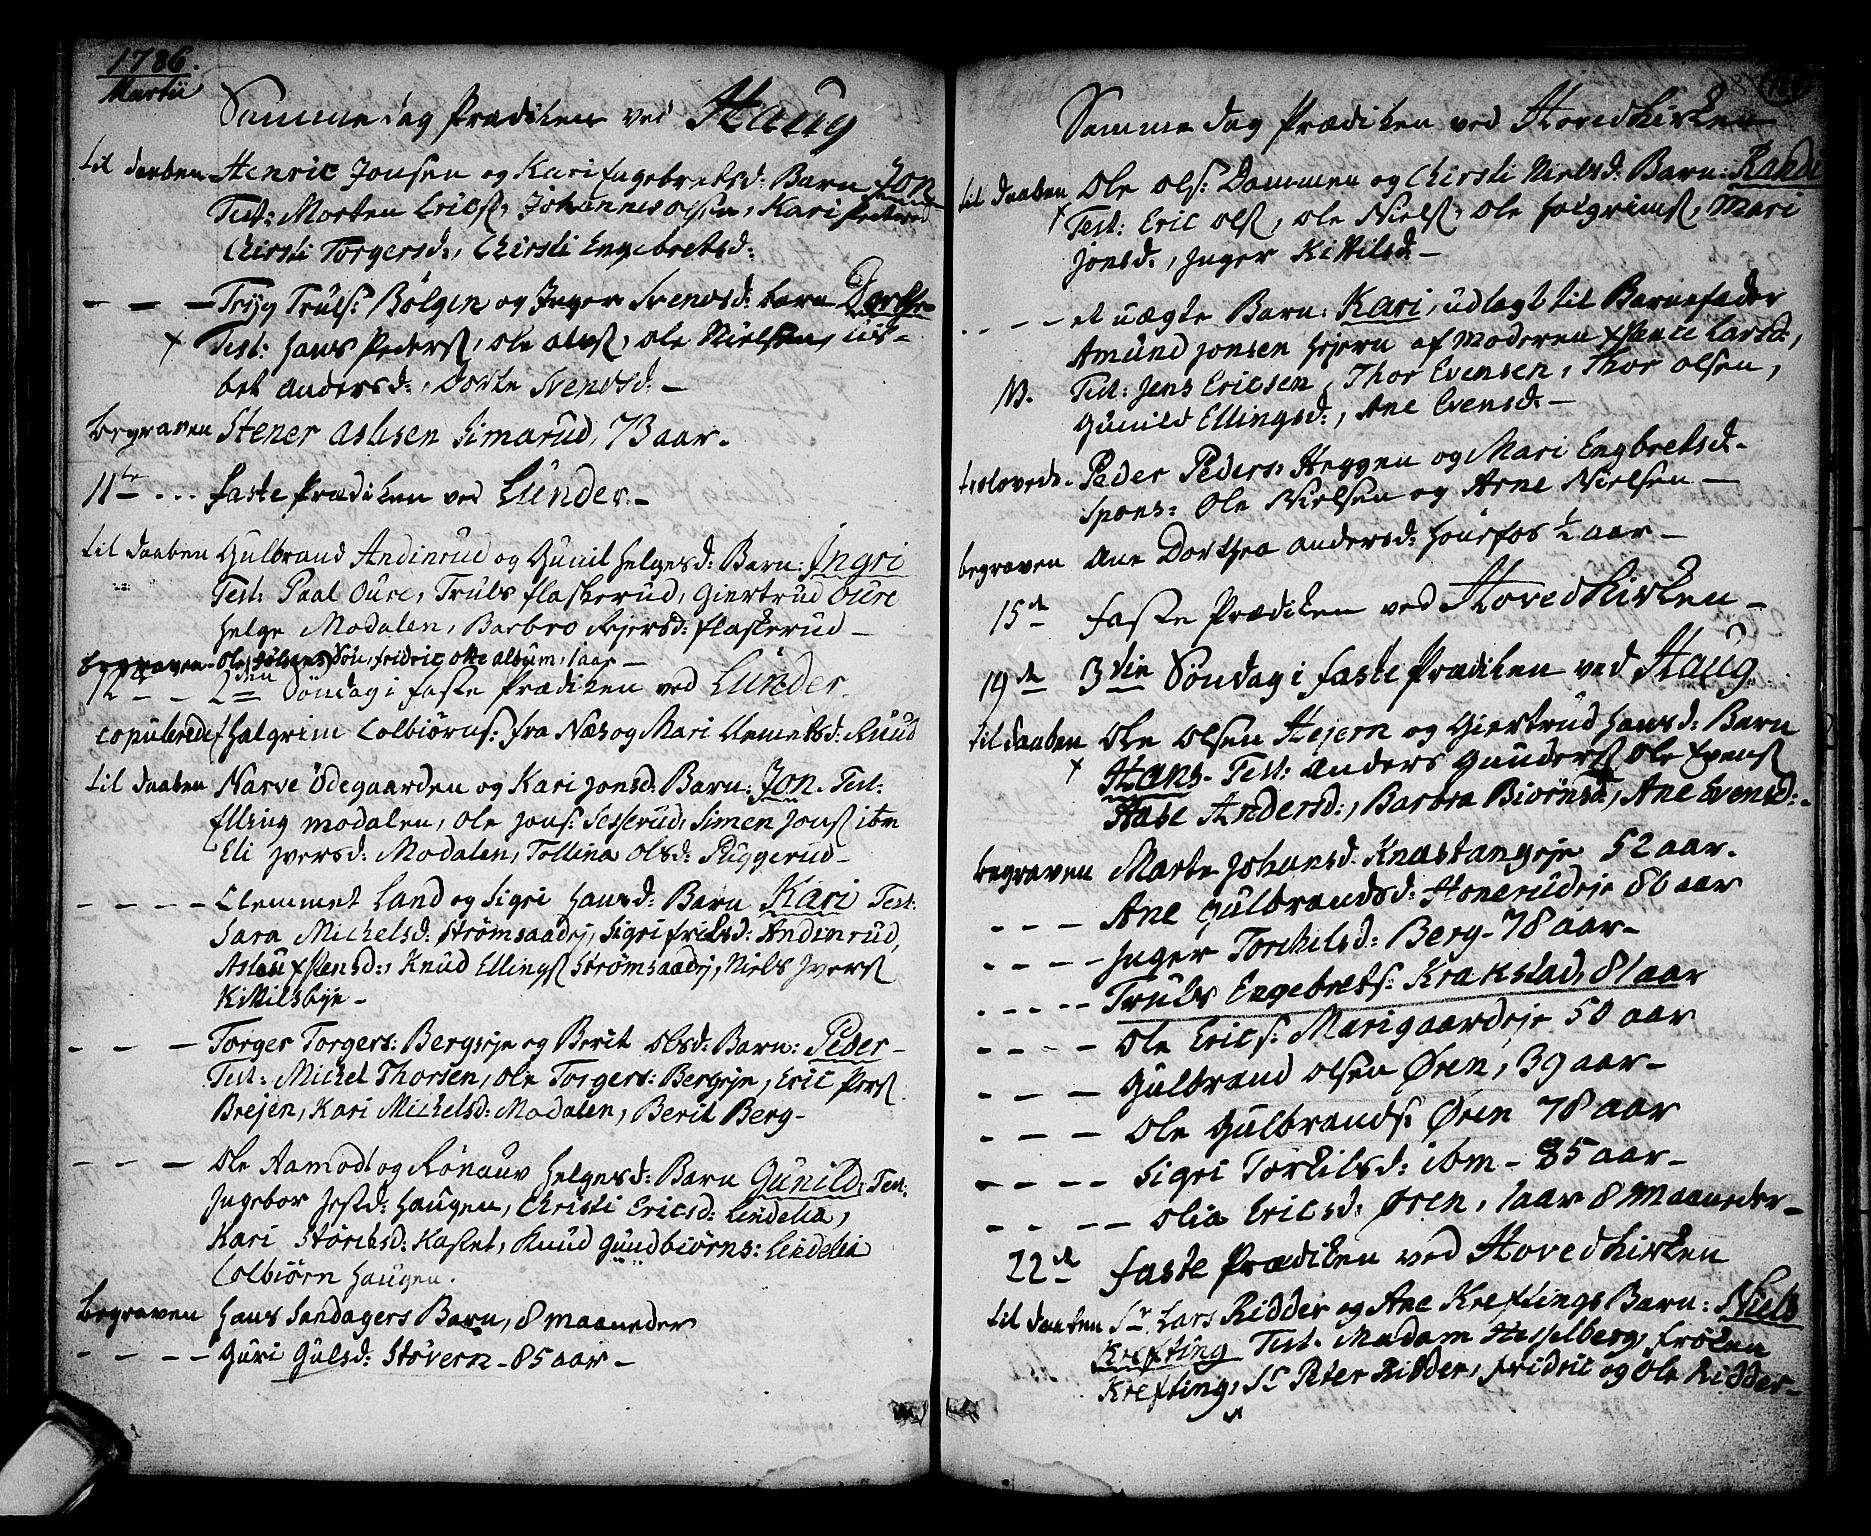 1786.
Martii
Samme dag Prædiken ved Haug
til daaben Henric Jonsen og Kari Engebretsd: Barn Jon
Test: Morten Erics, Johannes Olsen, Kari Pedersd
Chirsti Torgersd:, Chirsti Engebretsd:
- - - Tryg Truls: Bölgen og Inger Svendsd: barn Dorthe
x Test: Hans Peders, Ole Ols, Ole Nielsen, Lis-
bet Andersd:, Dorte Svendsd: -
begraven Stener Aslesen Simarud, 73 aar.
11te ... faste Prædiken ved Lunder. -
til daaben Gulbrand Andinrud og Gunil Helgesd: Barn: Ingri
Test: Paal Oure, Truls Flaskerud, Giertrud Oure
Helge Modalen, Barbro Rejersd: Flaskerud -
begraven Ole Søn, Fridric Otte, 1 aar -
12 - - 2den Söndag i faste Prædiken ved Lunder.
copulerede Halgrim Colbiörns: fra Næs og Mari Clemetsd: Ruud
til daaben Narve Ödegaarden og Kari Jonsd: Barn: Jon. Test:
Elling Modalen, Ole Jons: Sesserud, Simen Jons ibm
Eli Iversd: Modalen, Tollina Olsd: Puggerud -
- - - - Clemmet Land og Sigri Hansd: Barn Kari Test:
Sara Michelsd: Strömsaadej, Sigri Ericksd: Andinrud,
Aslau Stensd:, Knud Ellings Strömsaadej, Niels Ivers
Kittilsbye -
- - - Torger Torgers: Bergseje og Berit Olsd: Barn: Peder -
Test: Michel Thorsen, Ole Torgers: Bergeje, Eric Pers
Brejen, Kari Michelsd: Modalen, Berit Berg -
- - - Ole Aamodt og Rönauv Helgesd: Barn Gunild: Test:
Ingebor Jestd: Haugen, Christi Ericsd: Lindelia,
Kari Störchsd: Haslet, Knud Gundbiörns: Lindelia
Colbiörn Haugen.
begraven Hans Sandagers Barn, 8 maaneder
- - - - Guri Gulsd: Stövern - 85 aar -
Samme dag Prædiken ved Hovedkirken
til daaben Ole Ols: Dammen og Chirsti Nielsd: Barn: Randi
x Test: Eric Ols, Ole Niels, Ole Halgrims, Mari
Jonsd:, Inger Kittilsd: -
- - - - et uægte Barn: Kari, udlagt til Barnefader
Amund Jonsen Hejern af Moderen Larsd:,
N. Test: Jens Ericsen, Thor Evensen, Thor Olsen,
Gunild Ellingsd:, Ane Evensd: -
trolovede. Peder Peders: Heggen og Mari Engbretsd: -
Spons: Ole Nielsen og Arne Nielsen -
begraven Ane Dorthea Andersd: Hönefos ½ aar -
15de faste Prædiken ved Hovedkirken -
19de 3die Söndag i faste Prædiken ved Haug
til daaben Ole Olsen Hejern og Giertrud Hansd: Barn
x Hans - Test: Anders Gunders, Ole Evens
Aase Andersd:, Barbra Biörnsd, Ane Evensd: -
begraven Marte Johansd: Knastangeje 52 aar.
- - - Ane Gulbrandsd: Honerudeje 86 aar
- - - - Inger Torchilsd: Berg - 78 aar -
- - - - Truls Engebrets: Krakstad, 81 aar
- - - - Ole Erics: Marigaardeje 50 aar
- - - Gulbrand Olsen Øren, 39 aar -
- - - Ole Gulbrands: Øren 78 aar
- - - - Sigri Torkilsd: ibm - 85 aar -
- - - - Olia Ericsd: Øren, 1 aar 8 maaneder -
22de faste Prædiken ved Hovedkirken
til daaben Sr. Lars Ridder og Ane Kreftings Barn: Niels
Krefting Test: Madam Hesselberg, Fröken
Krefting, Sr Peter Ridder, Fridric og Ole Ridder -